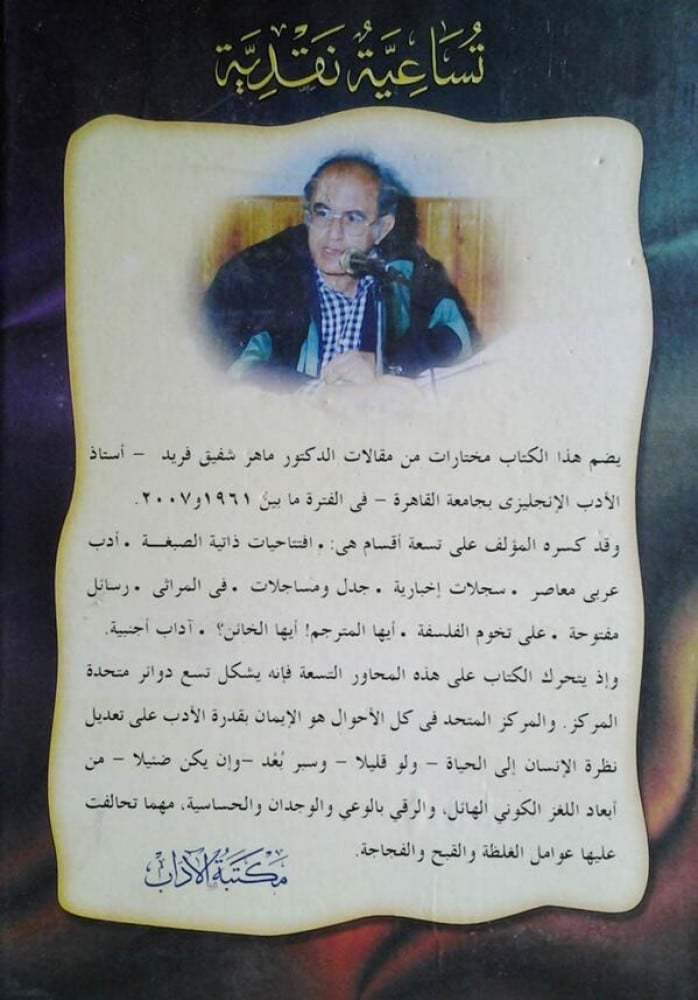 تُسَاعِيَّةٌ نَقْدِيَّة
يضم هذا الكتاب مختارات من مقالات الدكتور ماهر شفيق فريد - أستاذ
الأدب الإنجليزى بجامعة القاهرة - فى الفترة ما بين ١٩٦١و٢٠٠٧.
وقد كسره المؤلف على تسعة أقسام هى: • افتتاحيات ذاتية الصبغة • أدب
عربى معاصر • سجلات إخبارية • جدل ومساجلات • فى المراثى • رسائل
مفتوحة • على تخوم الفلسفة • أيها المترجم! أيها الخائن؟ • آداب أجنبية.
وإذ يتحرك الكتاب على هذه المحاور التسعة فإنه يشكل تسع دوائر متحدة
المركز. والمركز المتحد فى كل الأحوال هو الإيمان بقدرة الأدب على تعديل
نظرة الإنسان إلى الحياة - ولو قليلا - وسبر بُعْد -وإن يكن ضئيلا - من
أبعاد اللغز الكوني الهائل، والرقي بالوعي والوجدان والحساسية، مهما تحالفت
عليها عوامل الغلظة والقبح والفجاجة.
مكتبة الآداب